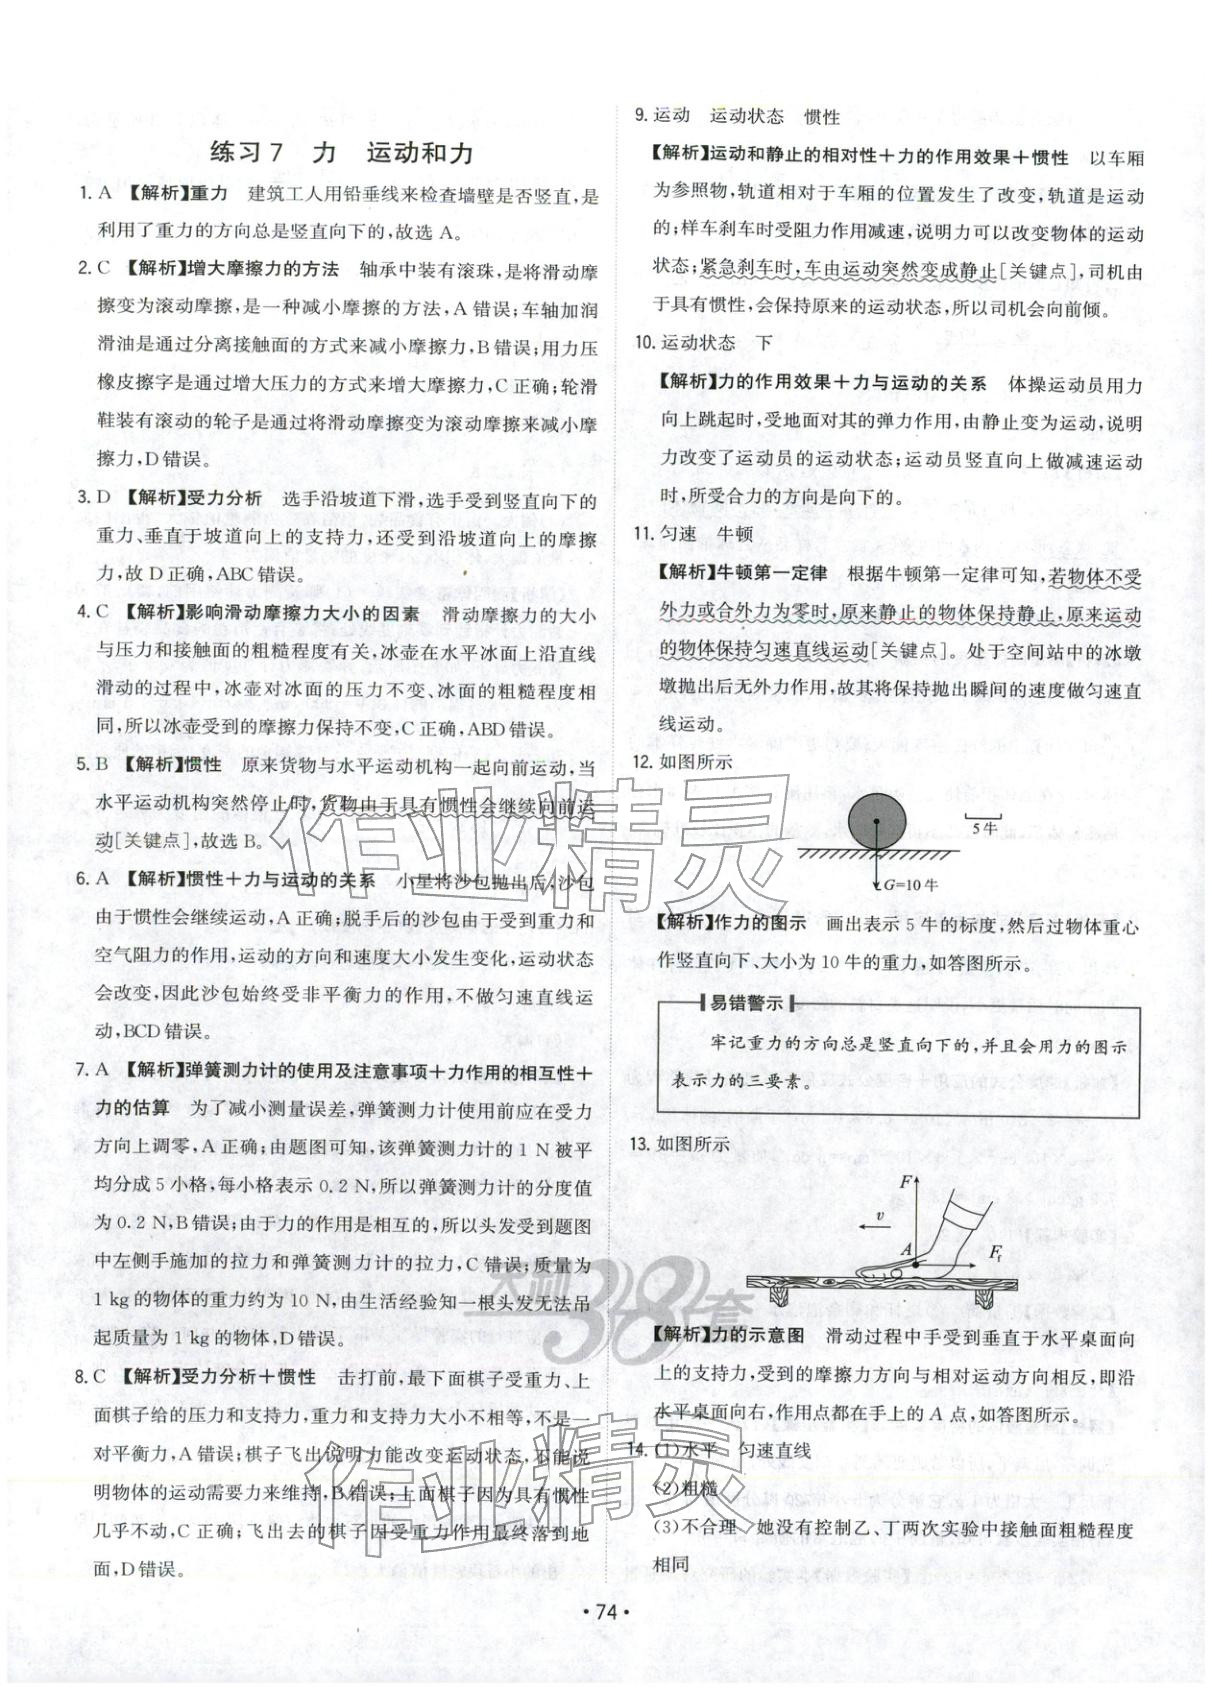 练习7　力　运动和力
1. A 【解析】重力　建筑工人用铅垂线来检查墙壁是否竖直,是
利用了重力的方向总是竖直向下的,故选 A。
2. C 【解析】增大摩擦力的方法　轴承中装有滚珠,是将滑动摩
擦变为滚动摩擦,是一种减小摩擦的方法,A 错误;车轴加润
滑油是通过分离接触面的方式来减小摩擦力,B 错误;用力压
橡皮擦字是通过增大压力的方式来增大摩擦力,C 正确;轮滑
鞋装有滚动的轮子是通过将滑动摩擦变为滚动摩擦来减小摩
擦力,D 错误。
3. D 【解析】受力分析　选手沿坡道下滑,选手受到竖直向下的
重力、垂直于坡道向上的支持力,还受到沿坡道向上的摩擦
力,故 D 正确,ABC 错误。
4. C 【解析】影响滑动摩擦力大小的因素　滑动摩擦力的大小
与压力和接触面的粗糙程度有关,冰壶在水平冰面上沿直线
滑动的过程中,冰壶对冰面的压力不变、冰面的粗糙程度相
同,所以冰壶受到的摩擦力保持不变,C 正确,ABD 错误。
5. B 【解析】惯性　原来货物与水平运动机构一起向前运动,当
水平运动机构突然停止时,货物由于具有惯性会继续向前运
动[关键点],故选 B。
6. A 【解析】惯性＋力与运动的关系　小星将沙包抛出后,沙包
由于惯性会继续运动,A 正确;脱手后的沙包由于受到重力和
空气阻力的作用,运动的方向和速度大小发生变化,运动状态
会改变,因此沙包始终受非平衡力的作用,不做匀速直线运
动,BCD 错误。
7. A 【解析】弹簧测力计的使用及注意事项＋力作用的相互性＋
力的估算　为了减小测量误差,弹簧测力计使用前应在受力
方向上调零,A 正确;由题图可知,该弹簧测力计的 1 N 被平
均分成 5 小格,每小格表示 0.2 N,所以弹簧测力计的分度值
为 0.2 N,B 错误;由于力的作用是相互的,所以头发受到题图
中左侧手施加的拉力和弹簧测力计的拉力,C 错误;质量为
1 kg 的物体的重力约为 10 N,由生活经验知一根头发无法吊
起质量为 1 kg 的物体,D 错误。
8. C 【解析】受力分析＋惯性　击打前,最下面棋子受重力、上
面棋子给的压力和支持力,重力和支持力大小不相等,不是一
对平衡力,A 错误;棋子飞出说明力能改变运动状态,不能说
明物体的运动需要力来维持,B 错误;上面棋子因为具有惯性
几乎不动,C 正确;飞出去的棋子因受重力作用最终落到地
面,D 错误。
9. 运动　运动状态　惯性
【解析】运动和静止的相对性＋力的作用效果＋惯性　以车厢
为参照物,轨道相对于车厢的位置发生了改变,轨道是运动
的;样车刹车时受阻力作用减速,说明力可以改变物体的运动
状态;紧急刹车时,车由运动突然变成静止[关键点],司机由
于具有惯性,会保持原来的运动状态,所以司机会向前倾。
10. 运动状态　下
【解析】力的作用效果＋力与运动的关系　体操运动员用力
向上跳起时,受地面对其的弹力作用,由静止变为运动,说明
力改变了运动员的运动状态;运动员竖直向上做减速运动
时,所受合力的方向是向下的。
11. 匀速　牛顿
【解析】牛顿第一定律　根据牛顿第一定律可知,若物体不受
外力或合外力为零时,原来静止的物体保持静止,原来运动
的物体保持匀速直线运动[关键点]。处于空间站中的冰墩
墩抛出后无外力作用,故其将保持抛出瞬间的速度做匀速直
线运动。
12. 如图所示
5 牛
G=10 牛
【解析】作力的图示　画出表示 5 牛的标度,然后过物体重心
作竖直向下、大小为 10 牛的重力,如答图所示。
易错警示
牢记重力的方向总是竖直向下的,并且会用力的图示
表示力的三要素。
13. 如图所示
F
v
A
Ff
【解析】力的示意图　滑动过程中手受到垂直于水平桌面向
上的支持力,受到的摩擦力方向与相对运动方向相反,即沿
水平桌面向右,作用点都在手上的 A 点,如答图所示。
14. (1)水平　匀速直线
(2)粗糙
(3)不合理　她没有控制乙、丁两次实验中接触面粗糙程度
相同
• 74 •
作业精灵
天利38套
作业精灵